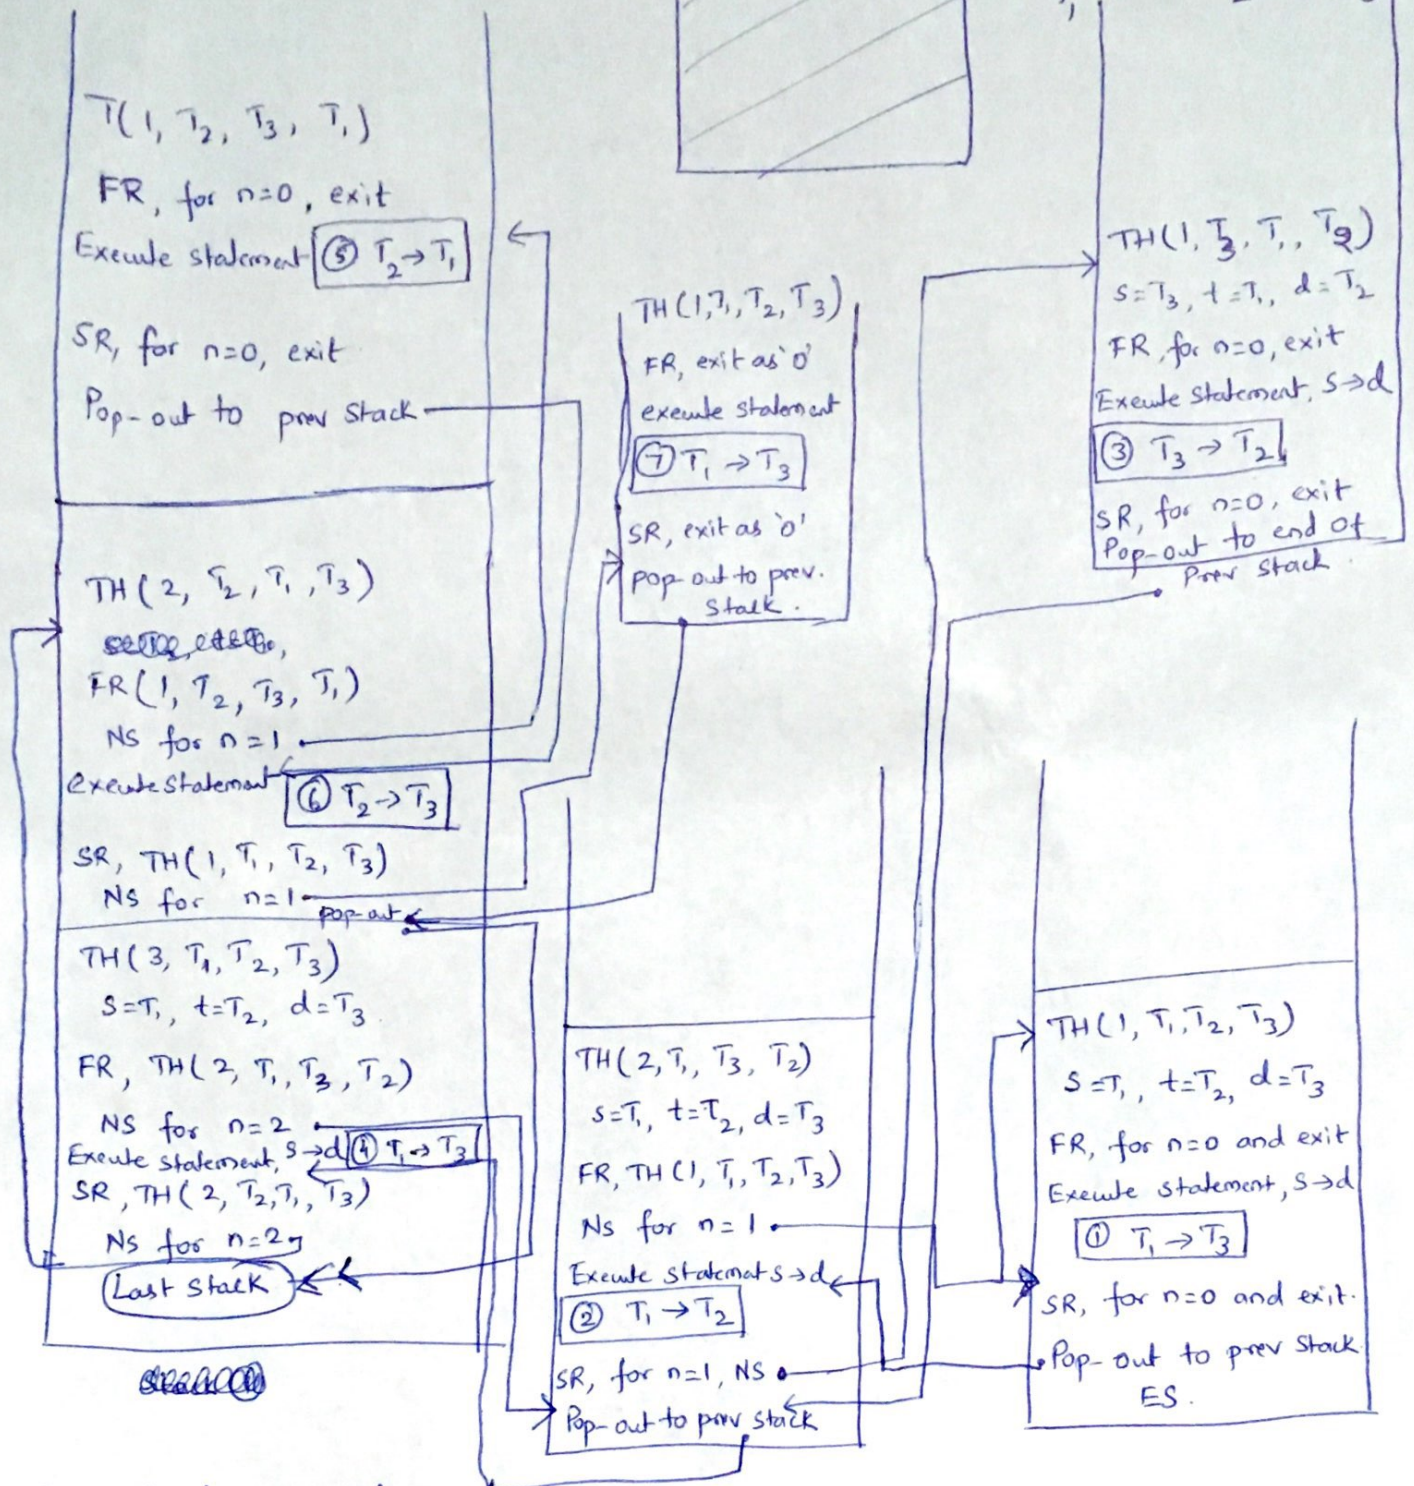 T(1, T₂, T₃, T₁)
FR, for n=0, exit
Execute statement ⑤ T₂→T₁
SR, for n=0, exit
Pop-out to prev stack
TH(2, T₂, T₁, T₃)
FR(1, T₂, T₃, T₁)
NS for n=1
execute statement ⑥ T₂→T₃
SR, TH(1, T₁, T₂, T₃)
NS for n=1
pop-out
TH(3, T₁, T₂, T₃)
S=T₁, t=T₂, d=T₃
FR, TH(2, T₁, T₃, T₂)
NS for n=2
Execute statement, S→d ④ T₁→T₃
SR, TH(2, T₂, T₁, T₃)
NS for n=2
Last Stack
TH(1, T₁, T₂, T₃)
FR, exit as '0'
execute statement
⑦ T₁→T₃
SR, exit as '0'
pop-out to prev.
stack.
TH(2, T₁, T₃, T₂)
S=T₁, t=T₂, d=T₃
FR, TH(1, T₁, T₂, T₃)
NS for n=1
Execute statemat S→d
② T₁→T₂
SR, for n=1, NS
Pop-out to prev stack
TH(1, T₃, T₁, T₂)
S=T₃, t=T₁, d=T₂
FR, for n=0, exit
Execute statement, S→d
③ T₃→T₂
SR, for n=0, exit
Pop-out to end of
Prev stack
TH(1, T₁, T₂, T₃)
S=T₁, t=T₂, d=T₃
FR, for n=0 and exit
Execute statement, S→d
① T₁→T₃
SR, for n=0 and exit.
Pop-out to prev stack
ES.